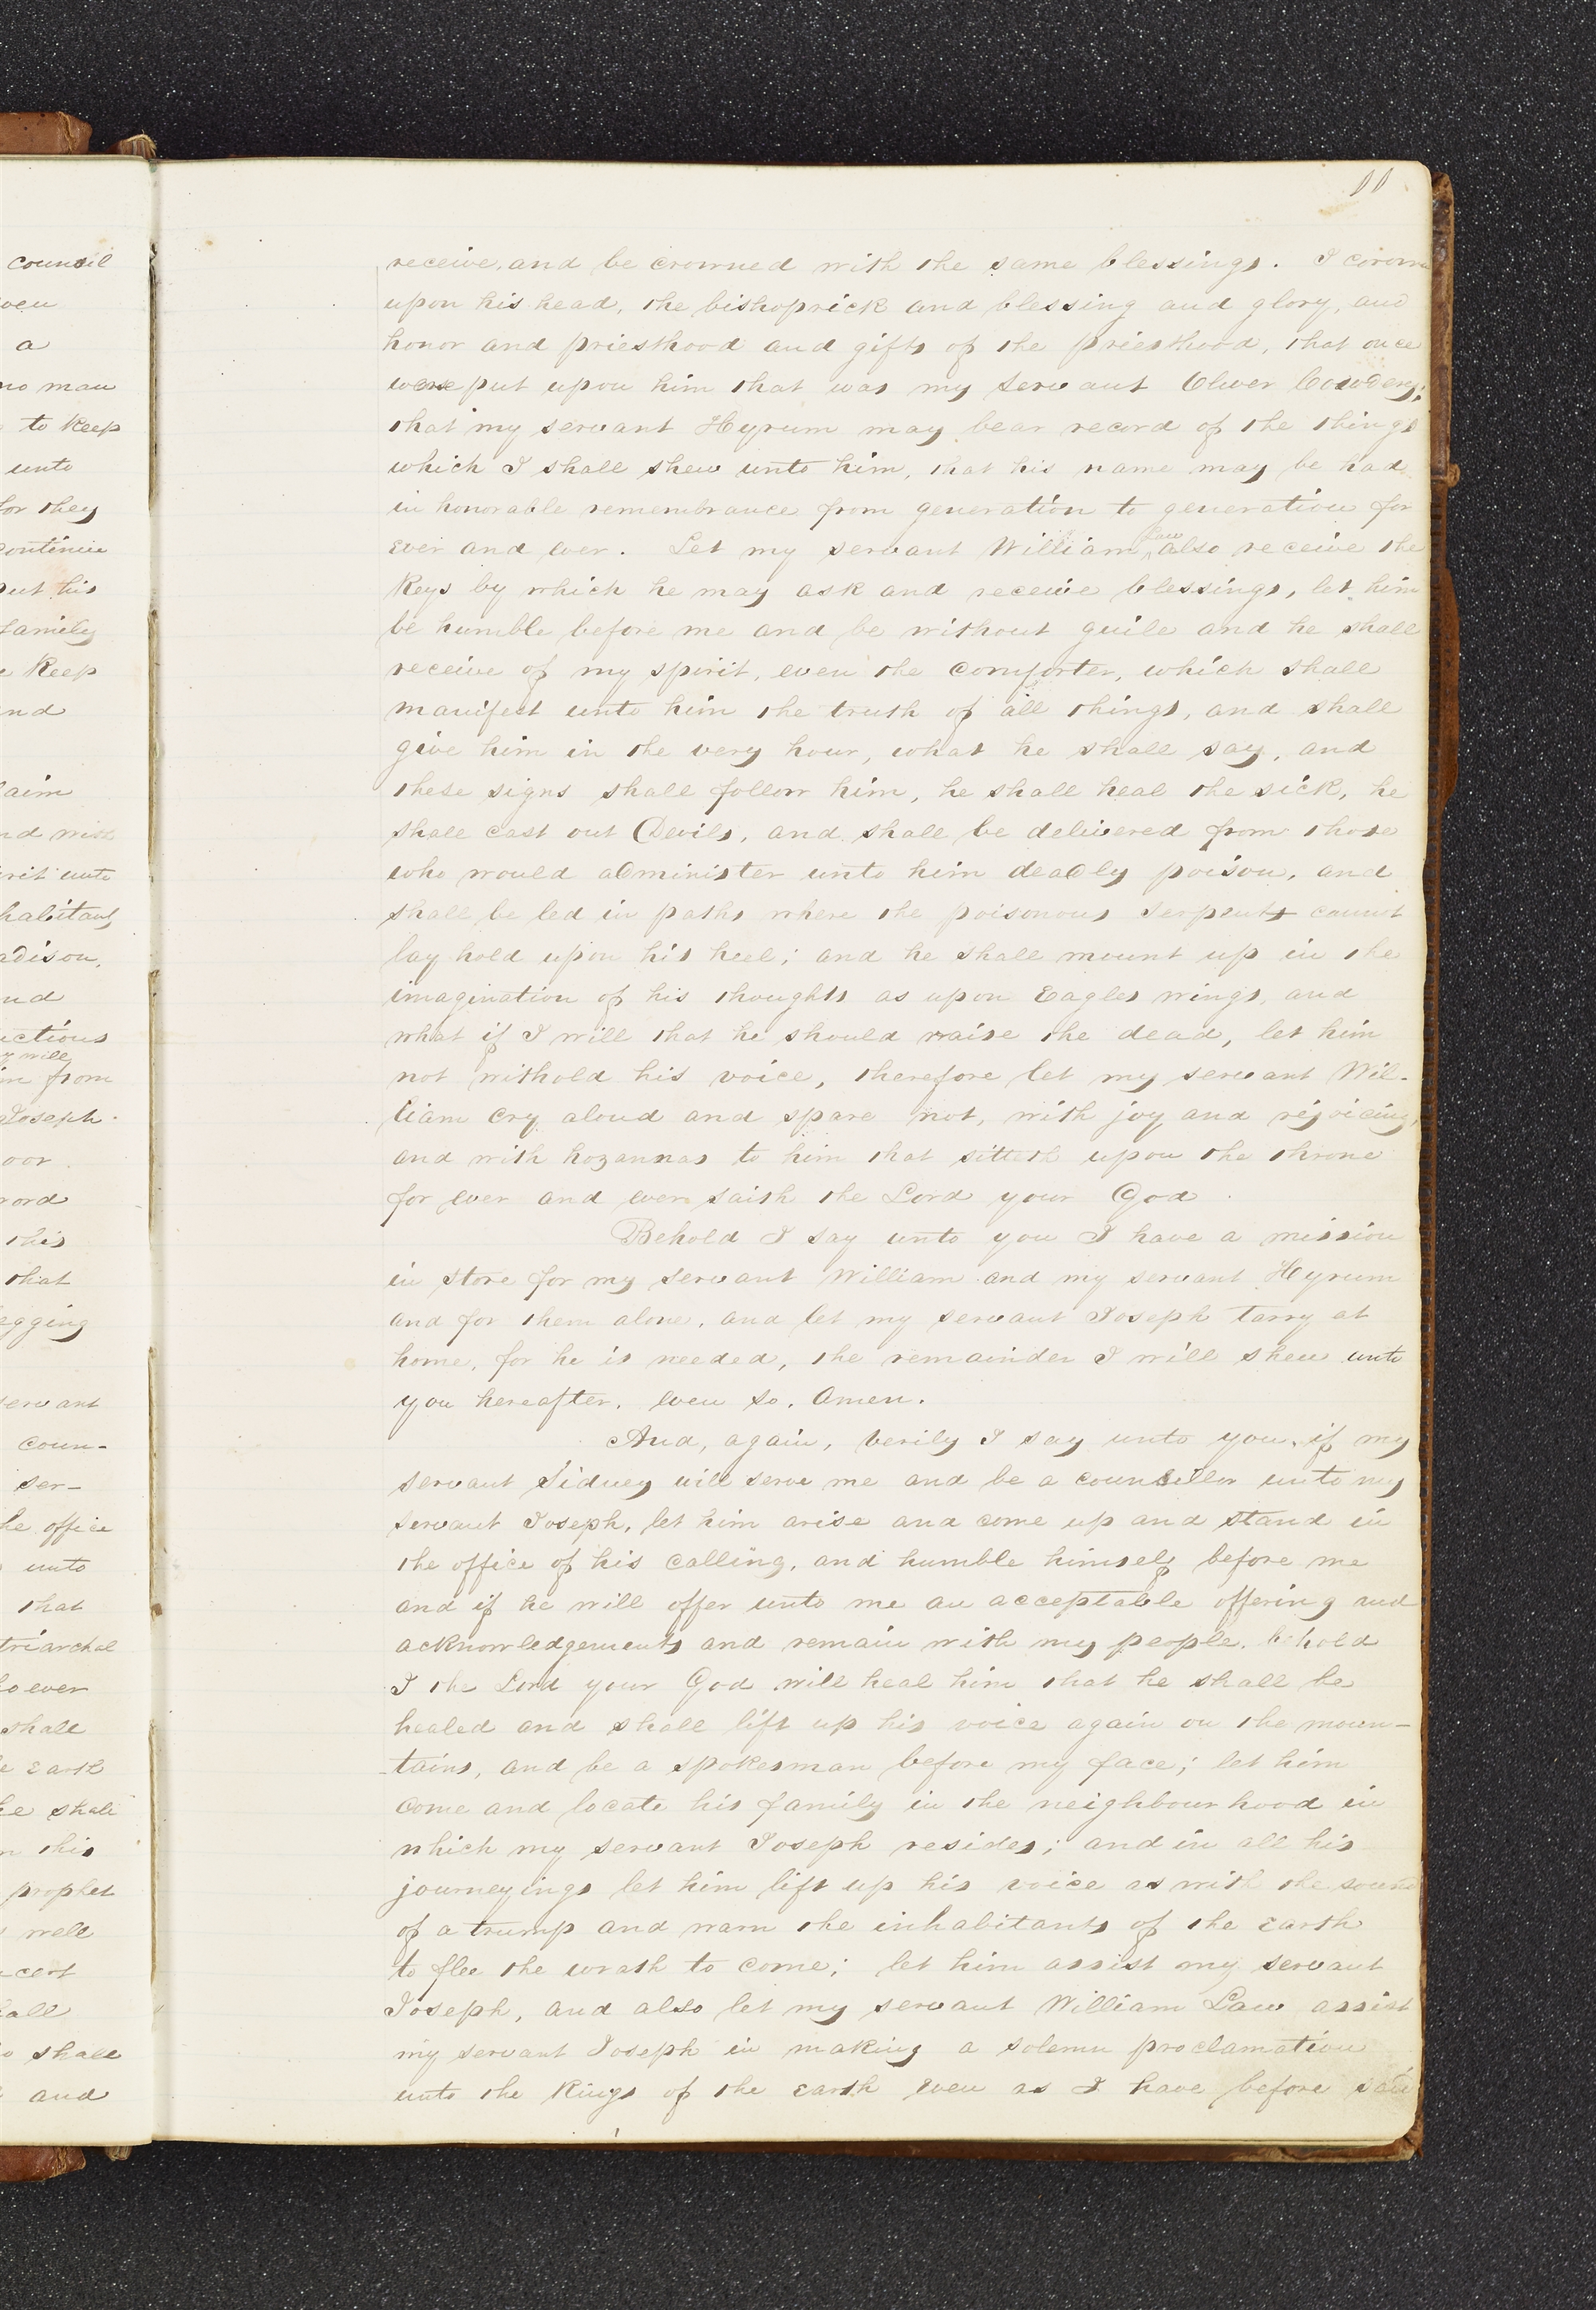 11
receive, and be crowned with the same blessings. I corown
upon his head, the bishoprick and blessing and glory, and
honor and priesthood and gifts of the priesthood, that once
were put upon him that was my servant Oliver Cowdery;
that my servant Hyrum may bear record of the things
which I shall shew unto him, that his name may be had
in honorable remembrance from generation to generation for
ever and ever. Let my servant William Law also receive the
Keys by which he may ask and receive blessings, let him
be humble before me and be without guile and he shall
receive of my spirit, even the comforter, which shall
manifest unto him the truth of all things, and shall
give him in the very hour, what he shall say, and
these signs shall follow him, he shall heal the sick, he
shall cast out Devils, and shall be delivered from those
who would administer unto him deadly poison, and
shall be led in paths where the poisonous serpents cannot
lay hold upon his heel; and he shall mount up in the
imagination of his thoughts as upon Eagles wings, and
what if I will that he should raise the dead, let him
not withold his voice, therefore let my servant Wil-
liam cry aloud and spare not, with joy and rejoicing,
and with hozannas to him that sitteth upon the throne
for ever and ever saith the Lord your God.
Behold I say unto you I have a mission
in store for my servant William and my servant Hyrum
and for them alone, and let my servant Joseph tarry at
home, for he is needed, the remainder I will shew unto
you hereafter, even so, Amen.
And, again, verily I say unto you, if my
servant Sidney will serve me and be a councillor unto my
servant Joseph, let him arise and come up and stand in
the office of his calling, and humble himself before me
and if he will offer unto me an acceptable offering and
acknowledgements and remain with my people, behold
I the Lord your God will heal him that he shall be
healed and shall lift up his voice again on the moun-
tains, and be a spokesman before my face; let him
come and locate his family in the neighbourhood in
which my servant Joseph resides; and in all his
journeyings let him lift up his voice as with the sound
of a trump and warn the inhabitants of the earth
to flee the wrath to come; let him assist my servant
Joseph, and also let my servant William Law assist
my servant Joseph in making a solemn proclamation
unto the Kings of the earth even as I have before said
council
a
no man
to keep
unto
for they
continue
put his
family
Keep
habitants
from
Joseph
this
that
servant
coun-
ser-
office
unto
that
shall
earth
he shall
this
prophet
well
shall
and